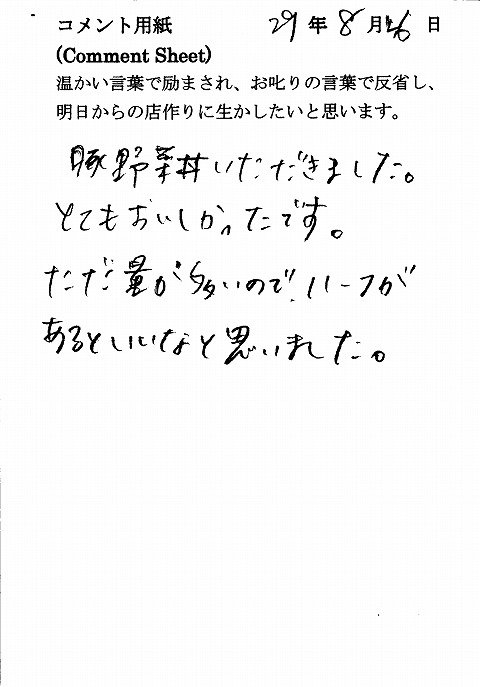 コメント用紙 29年8月26日
(Comment Sheet)
温かい言葉で励まされ、お叱りの言葉で反省し、
明日からの店作りに生かしたいと思います。
豚野菜丼いただきました。
とてもおいしかったです。
ただ量が多いので、ハーフが
あるといいなと思いました。